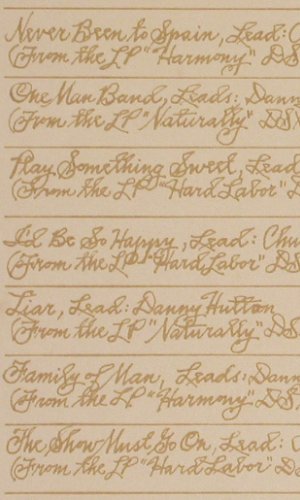 Never Been to Spain, Lead: C
(From the LP "Harmony" DS
One Man Band, Leads: Dann
(From the LP "Naturally" DS
Play Something Sweet, Lead
(From the LP "Hard Labor" D
I'd Be So Happy, Lead: Chu
(From the LP "Hard Labor" DS
Liar, Lead: Danny Hutton
(From the LP "Naturally" DS
Family of Man, Leads: Dann
(From the LP "Harmony" DS
The Show Must Go On, Lead: C
(From the LP "Hard Labor" D